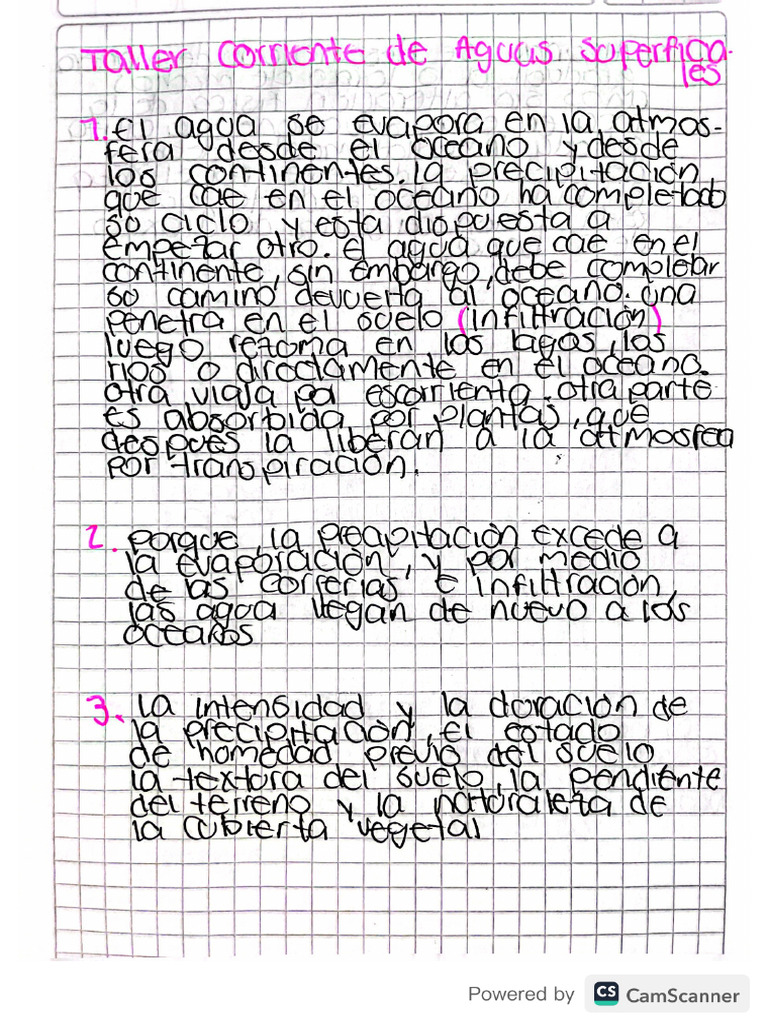 Taller Corriente de Aguas superfica-
les
1. El agua se evapora en la atmos-
fera desde el oceano y desde
los continentes. la precipitación
que cae en el oceano ha completado
su ciclo y esta dispuesta a
empezar otro. El agua que cae en el
continente, sin embargo, debe completar
su camino devuelta al oceano. una
penetra en el suelo (infiltración)
luego retoma en los lagos, los
rios o directamente en el oceano.
otra viaja pa escorrienta. otra parte
es absorbida por plantas, que
despues la liberan a la atmosfea
por transpiración.
2. Porque la precipitación excede a
la evaporación, y por medio
de las correrias e infiltración,
las agua llegan de nuevo a los
oceanos
3. La intensidad y la duración de
la precipitación, el estado
de homedad previo del suelo
la textura del suelo, la pendiente
del terreno y la naturaleza de
la cubierta vegetal
Powered by CS CamScanner